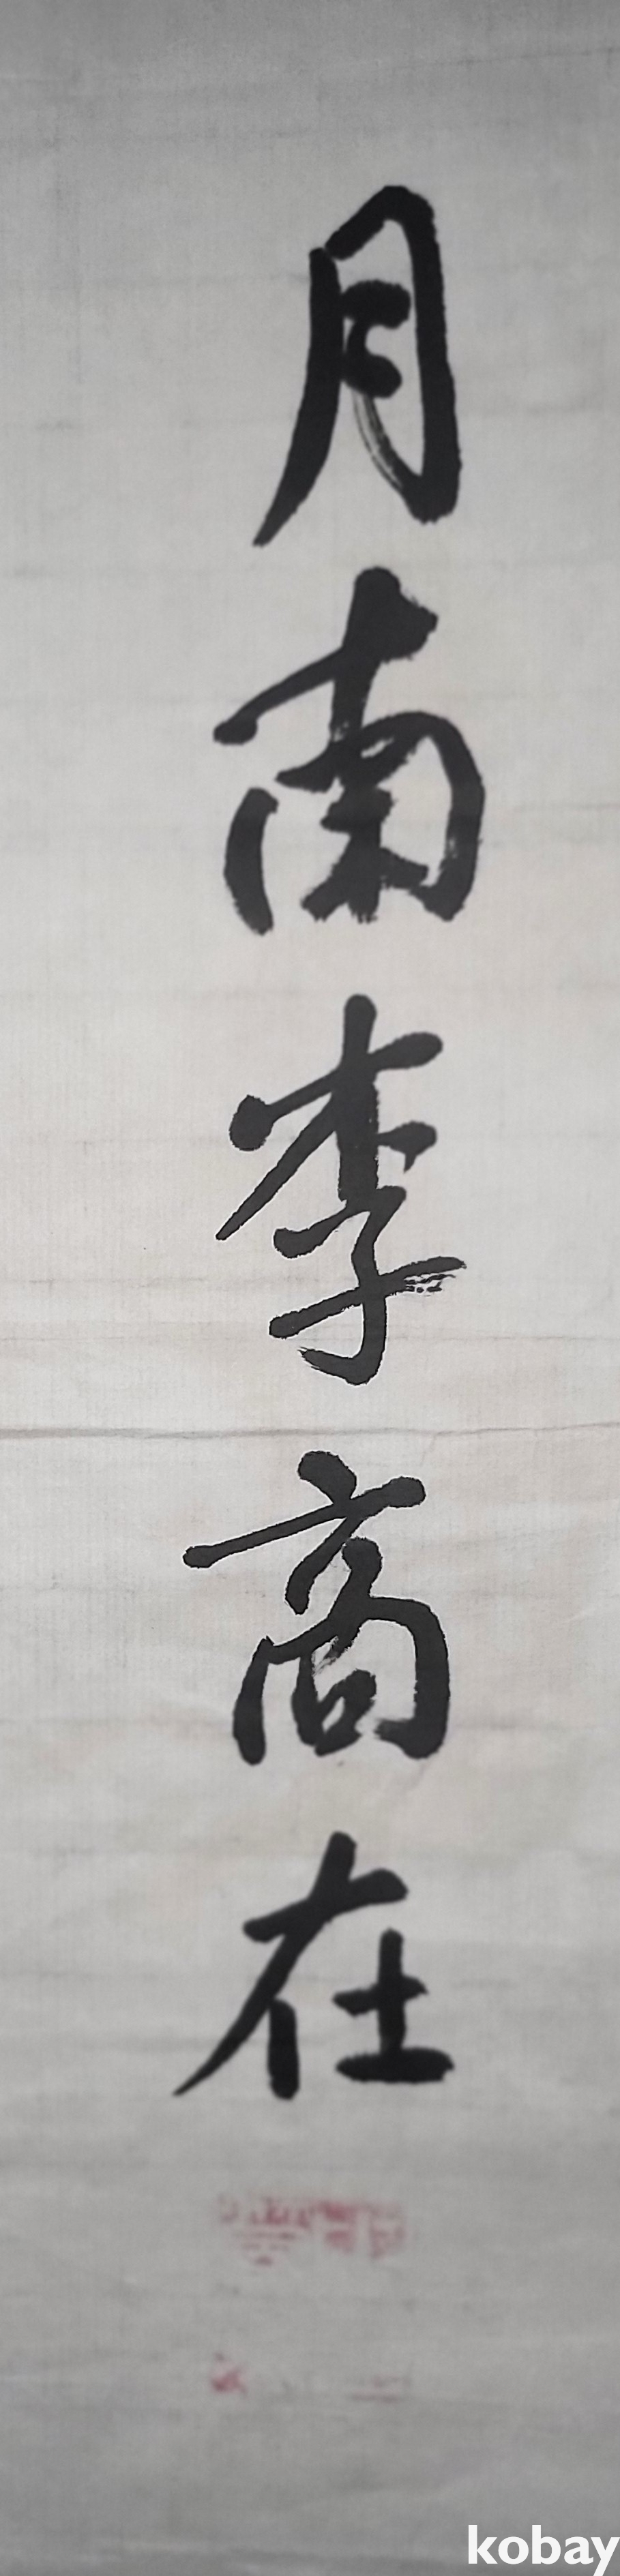 月南李商在
kobay